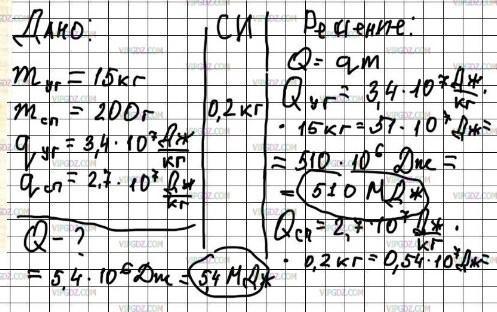 Дано:
m уг = 15 кг
m сп = 200 г
q уг = 3,4 · 10⁷ Дж/кг
q сп = 2,7 · 10⁷ Дж/кг
Q - ?
СИ
0,2 кг
Решение:
Q = qm
Q уг = 3,4 · 10⁷ Дж/кг ·
· 15 кг = 51 · 10⁷ Дж =
= 510 · 10⁶ Дж =
= 510 МДж
Q сп = 2,7 · 10⁷ Дж/кг ·
· 0,2 кг = 0,54 · 10⁷ Дж =
= 5,4 · 10⁶ Дж = 54 МДж
VIPGDZ.COM